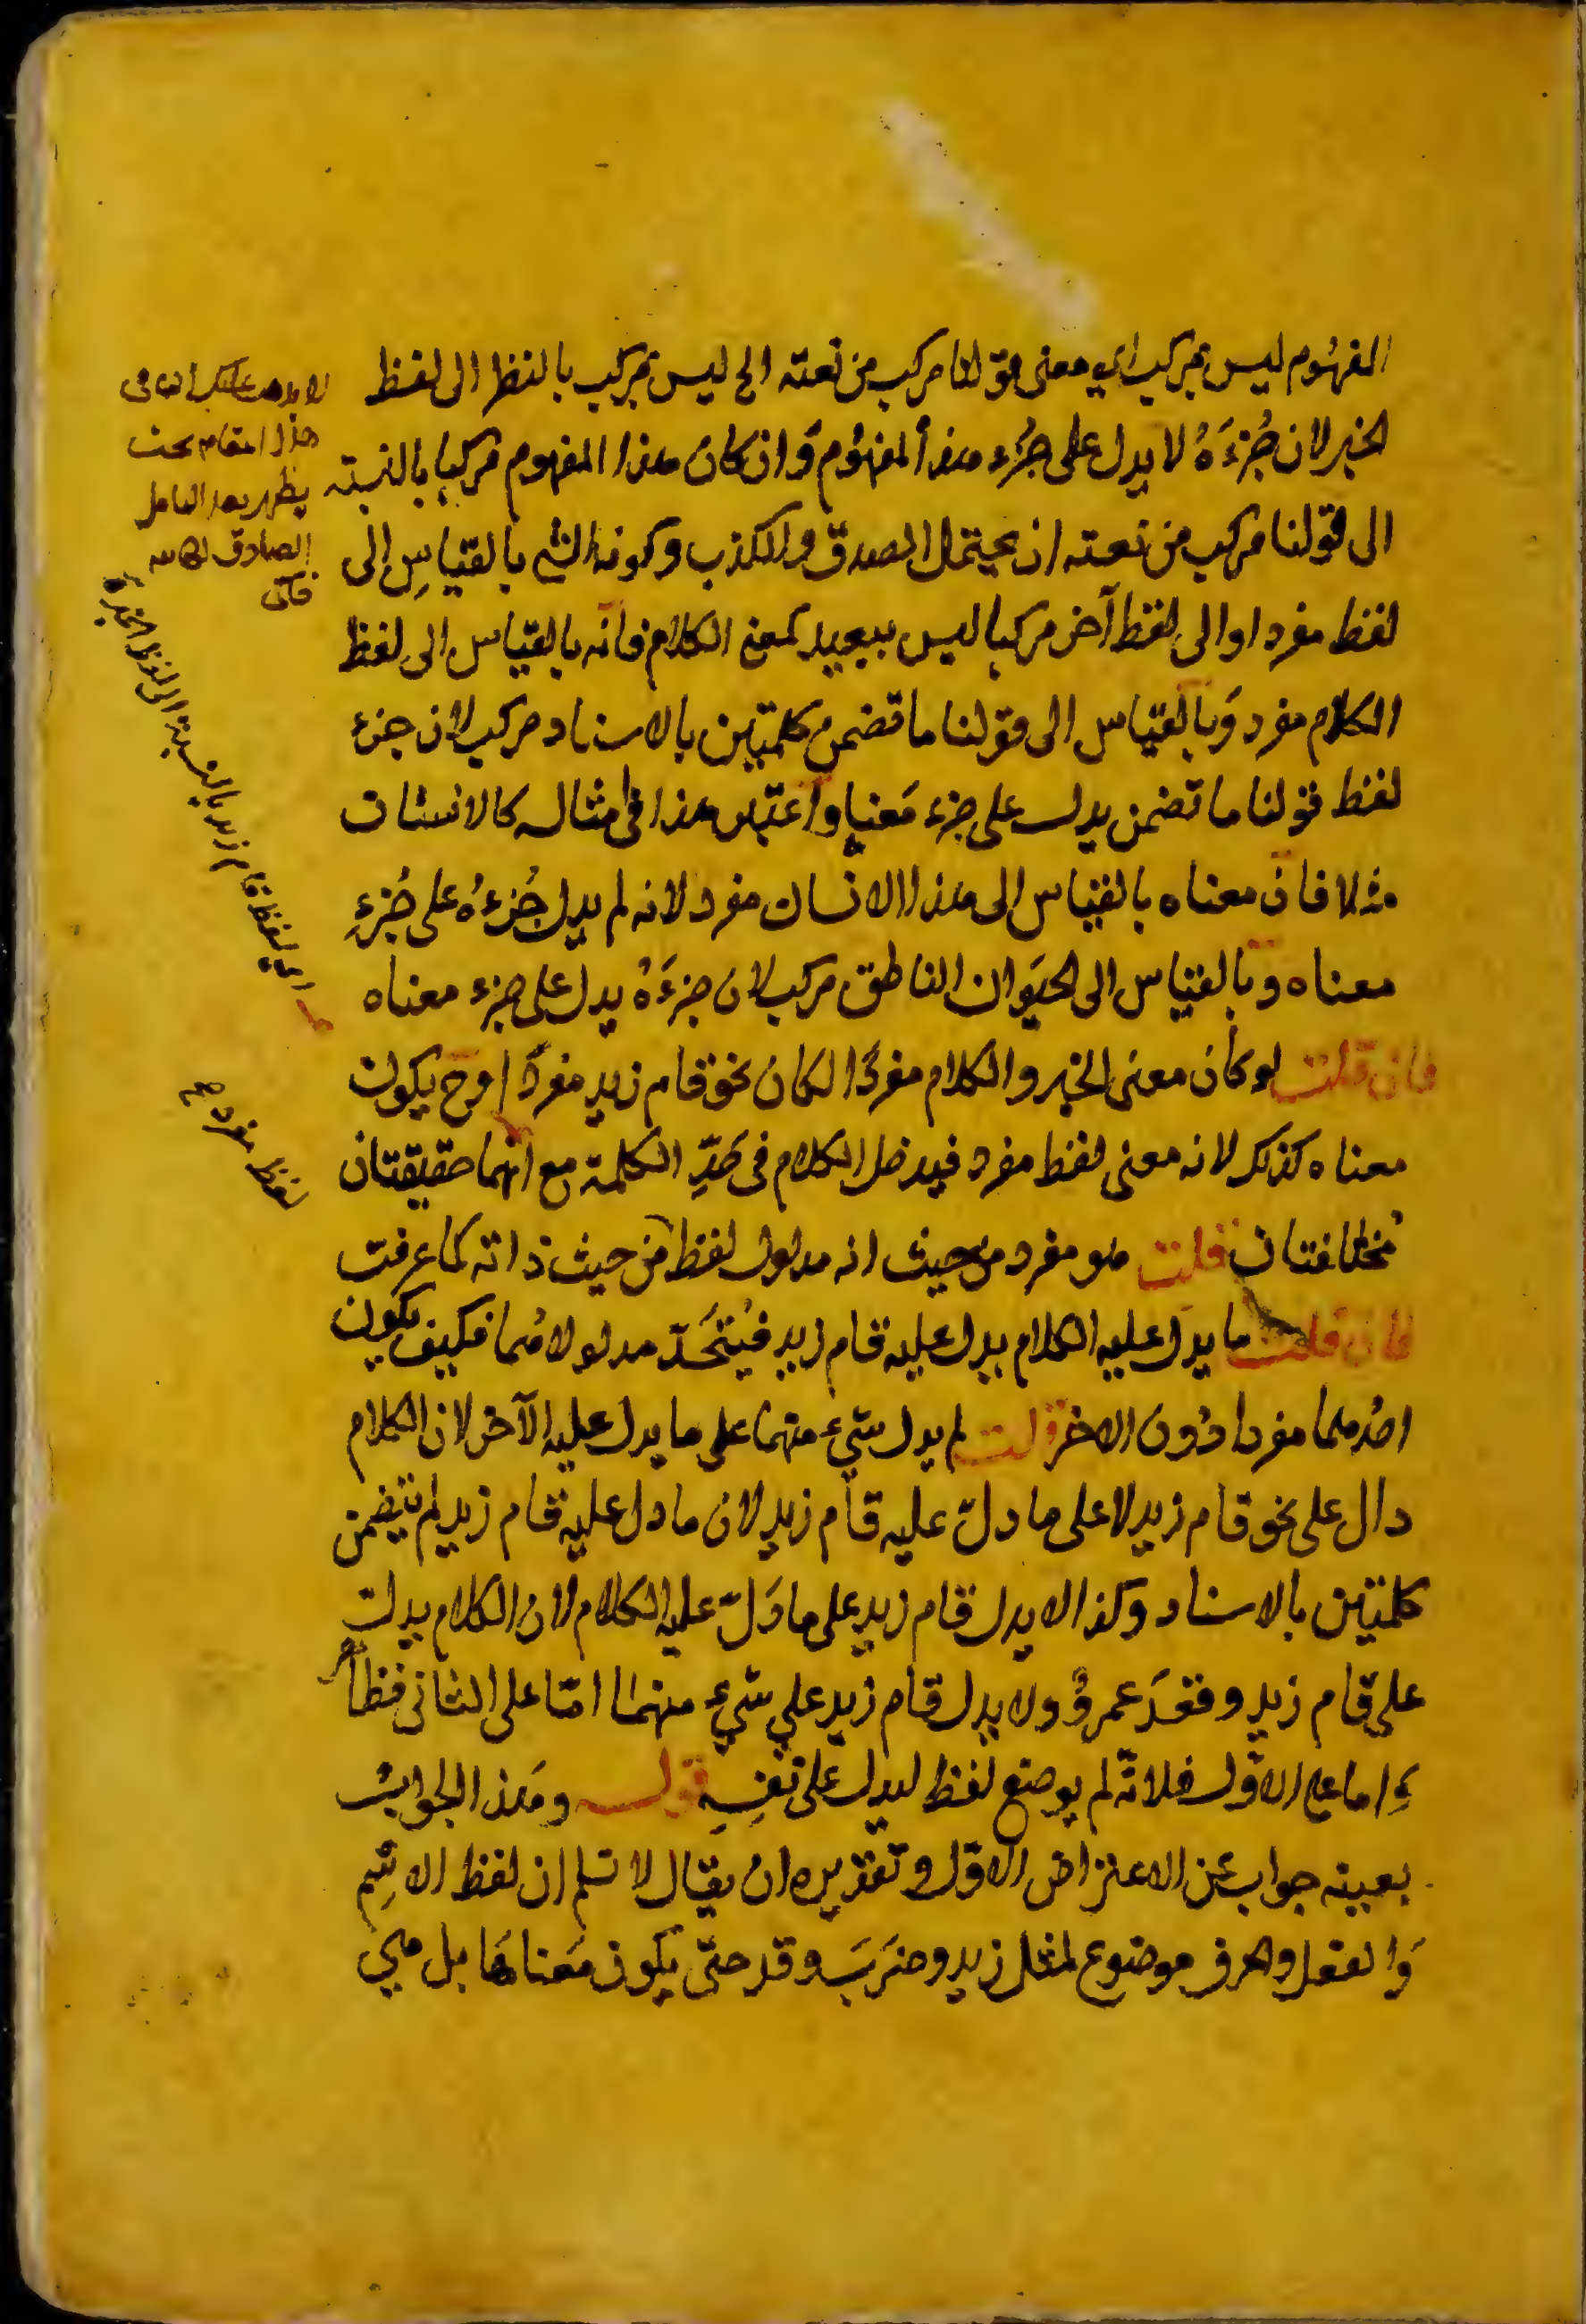 المفهوم ليس بمركب اي معنى قولنا مركب من نعته الخ ليس بمركب بالنظر الى لفظ
الخبر لان جُزءَهُ لا يدل على جُزء هذا المفهُوم وَان كان هذا المفهوم مركبا بالنسبته
الى قولنا مركب من نعته ان يحتمل الصدق والكذب وكون الشئ بالقياسِ إلى
لفظ مفردا والى لفظ آخر مركبا ليس ببعيد كمعنى الكلام فانه بالقياس الى لفظ
الكلام مفرد وَبالقياس الى قولنا ما تضمن كلمتين بالاسناد مركب لان جزء
لفظ قولنا ما تضمن يدل على جزء مَعنا واعتبر هذا في مثاله كالانسان
مثلا فان معناه بالقياس الى هذا الانسان مفرد لانه لم يدل جُزءهُ على جُزءِ
معناه وبالقياس الى الحيَوان الناطق مركب لان جزءَهُ يدل على جزء معناه
فان قلت لو كان معنى الخبر والكلام مفردًا لكان نحو قام زيد مفردًا وح يكون
معناه كذلك لانه معنى لفظ مفرد فيدخل الكلام فى حَدِّ الكلمة مع انهما حقيقتان
مُختلفتان قلت هو مفرد من حيث انه مدلول لفظ من حيث ذاته كما عرفت
فان قلت ما يدل عليه الكلام يدل عليه قام زيد فيُتحَدّ مدلولاهُما فكيف يكون
احُدهما مفردا دُون الاخر قلت لم يدل شيء منهما على ما يدل عليه الآخر لان الكلام
دال على نحو قام زيد لا على ما دلّ عليه قام زيد لان ما دل عليه قام زيد لم يتضمن
كلمتين بالاسناد وكذا لا يدل قام زيد على ما دَلّ عليه الكلام لان الكلام يدل
على قام زيد وقعدَ عمروٌ ولا يدل قام زيد علي شيءٍ منهما امّا على الثانى فظاهر
وَاما على الاوّل فلانّه لم يوضع لفظ ليدل على نفسِهِ قوله وهَذا الجوابُ
بعينه جواب عن الاعتراض الاوّل وتقديره ان يقال لا نسلم ان لفظ الاسِم
وَالفعل والحرف موضوع لمثل زيد وضرَبَ وقد حتّى يكون مَعناهَا بل هي
هذا المقام بحث
يظهر بعد التامل
الصادق
اي لفظ قام زيد بالنسبة الى لفظ الخبر
لفظ مفرد ح